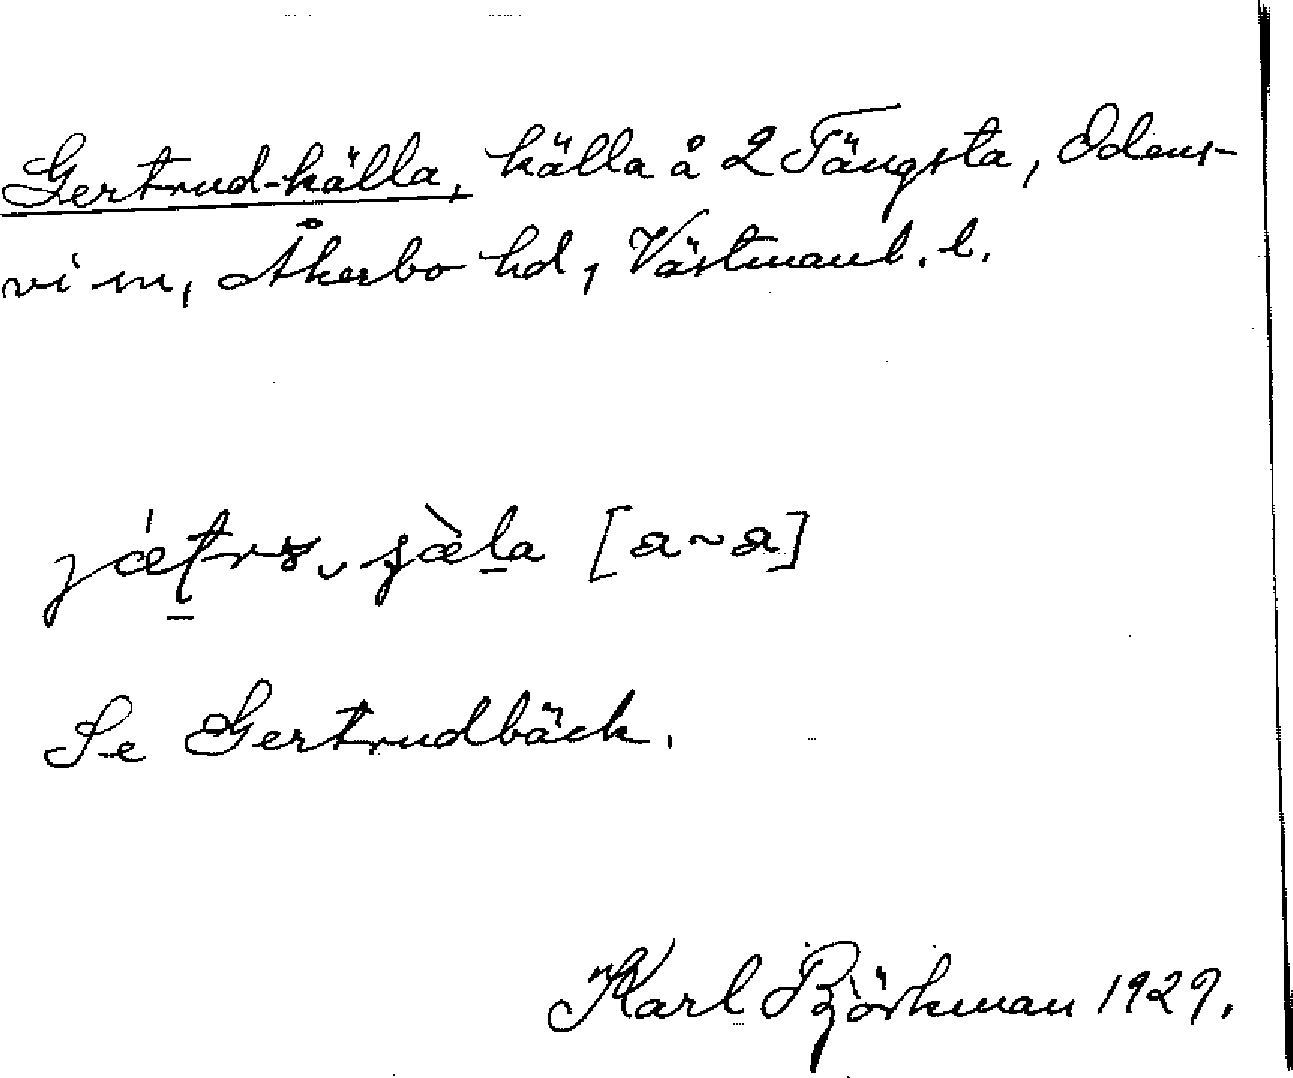 Gertrud-källa, källa å 2 Tängsta, Odens-
vi sn, Åkerbo hd, Västmanl. l.
[a~a]
Se Gertrudbäck.
Karl Björkman 1929.